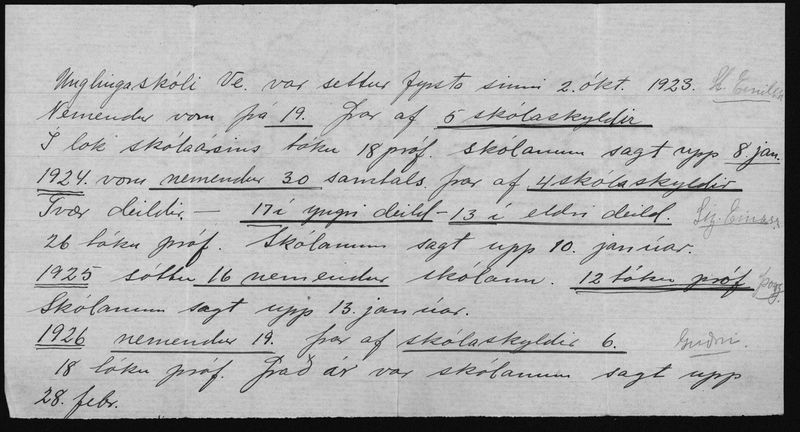 Unglingaskóli Ve. var settur fyrsta sinni 2. ókt. 1923. St. Emilía
Nemendur voru þá 19. Þar af 5 skólaskyldir
Í lok skólaársins tóku 18 próf. Skólanum sagt upp 8 jan.
1924. voru nemendur 30 samtals. þar af 4 skólaskyldir
Tvær deildir - 17 í yngri deild - 13 í eldri deild.
26 tóku próf. Skólanum sagt upp 10. janúar.
1925 sóttu 16 nemendur skólann. 12 tóku próf
Skólanum sagt upp 13. janúar.
1926 nemendur 19. Þar af skólaskyldir 6.
18 tóku próf. Það ár var skólanum sagt upp
28. febr.